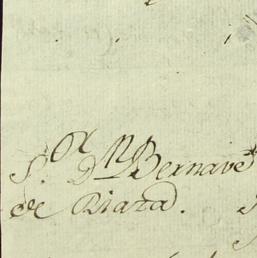 S.or D.n Bernave
de Riaza.